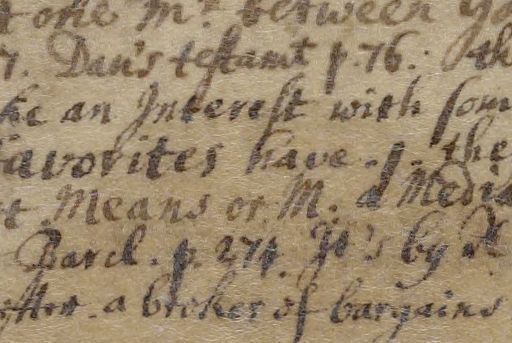 one Mr. between
7. Dan's testamt p. 76. th
ke an Interest with som
favorites have. p. the
t Means or M. a Media
Barcl. p. 274. It's by
a broker of bargains